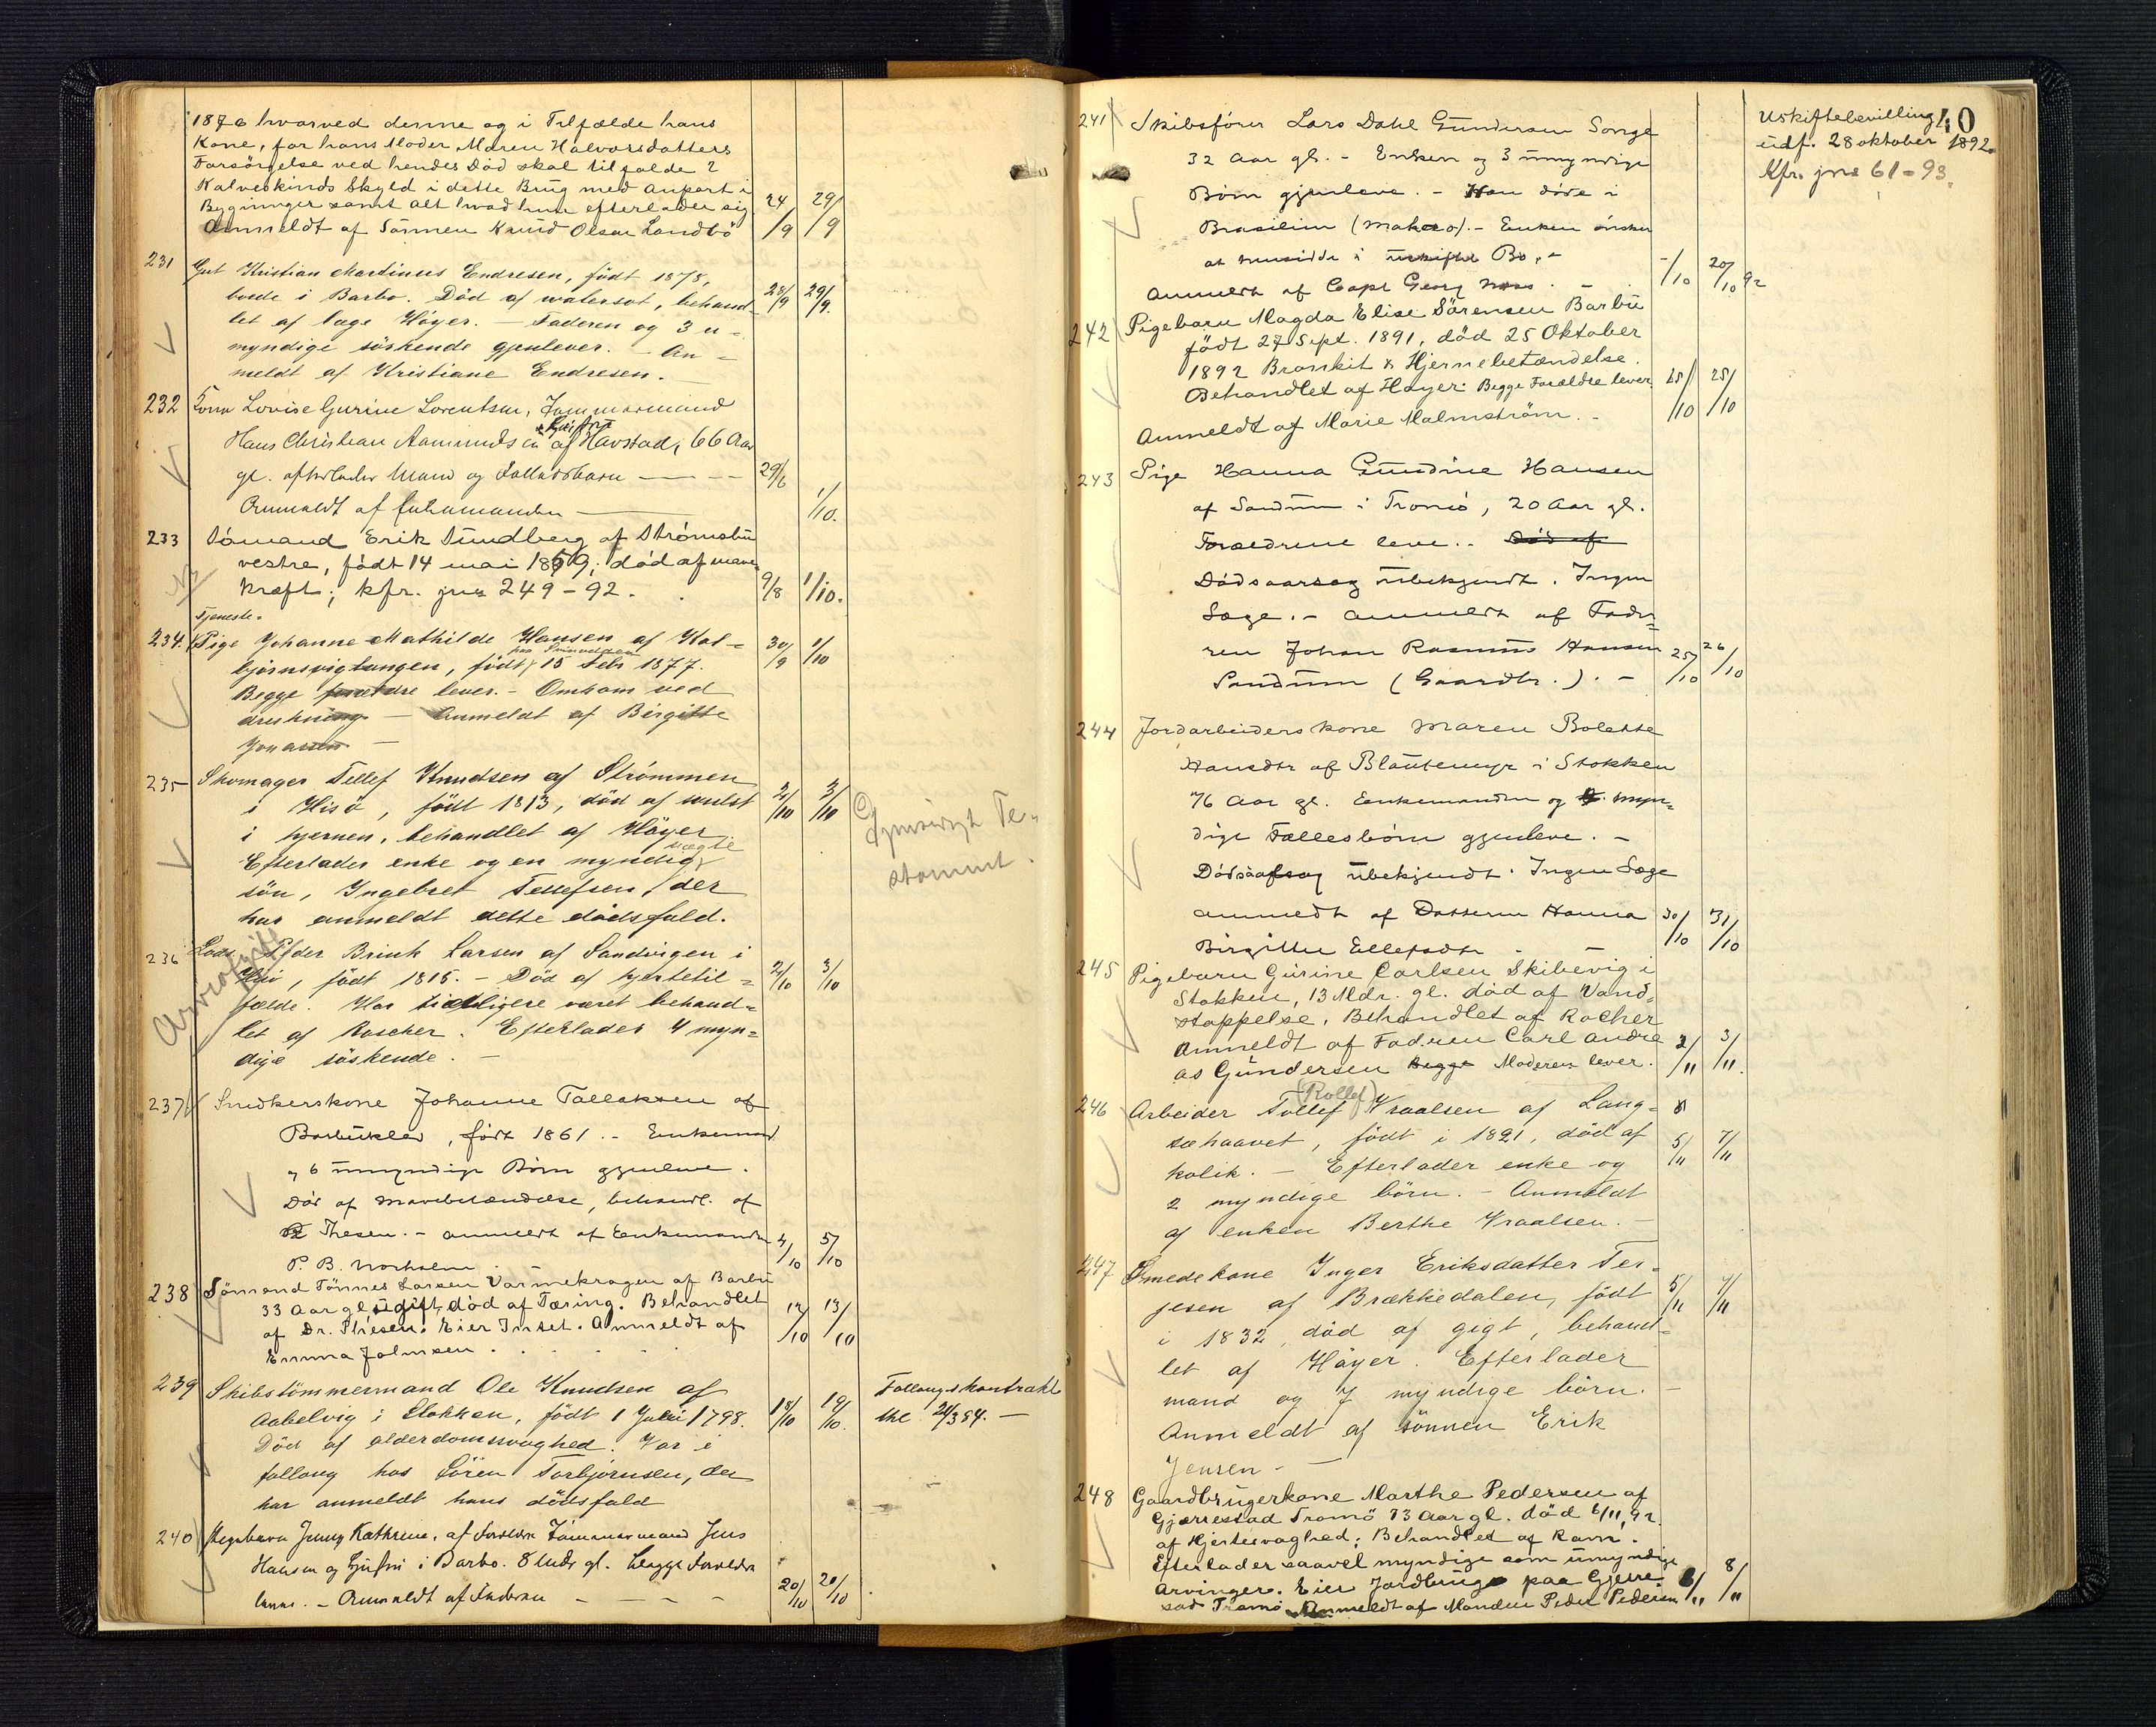 1876 hvorved denne og i Tilfælde hans
Kone, for hans Moder Maren Halvorsdatters
Forsörgelse ved hendes Död skal tilfalde 2
Kalveskinds Skyld i dette Brug med Anpart i
Bygninger samt alt hvad hun efterlader sig 24/9 29/9
Anmeldt af Sönnen Knud Olsen Landbö
231 Gut Kristian Martinus Endresen, födt 1878,
boede i Barbo. Död af watersot, behand- 28/9 29/9
let af læge Höyer. – Faderen og 3 u-
myndige söskende gjenlever. – An-
meldt af Kristiane Endresen.
232 Kone Lovise Gurine Lorentsen, Tömmermand
Hans Christian Aamundsen af Havstad, 66 Aar
gl. efterlader Mand og Fællesbarn 29/6
Anmeldt af Enkemanden 1/10.
233 Sömand Erik Sundberg af Strömsbu
vestre, födt 14 mai 1859; död af mave-
kræft; kfr. jno 249-92. 9/8 1/10.
Tjeneste-
234. Pige Johanne Mathilde Hansen af Kol- 30/9 1/10
björnsvigtangen, födt 15 Febr 1877.
Begge forældre lever. – Omkom ved
drukning – Anmeldt af Birgitte
Johansen –
235 Skomager Tellef Knudsen af Strömmen
i Hisö, födt 1813, död af svulst 2/10 3/10
i hjernen, behandlet af Höyer.
Efterlader enke og en myndig
ægte
sön, Ingebret Tellefsen, der
har anmeldt dette dödsfald.
Gjensidigt Te-
stament.
236 Lods Peder Brink Larsen af Sandvigen i
Hisö, födt 1815. – Död af hjertetil- 2/10 3/10
fælde. Har tidligere været behand-
let af Roscher. Efterlader 4 myn-
dige söskende. –
Arveafgift
237 Snedkerskone Johanne Tallaksen af
Barbuklev, födt 1861. – Enkemand
og 6 umyndige Börn gjenleve.
Död af Mavebetændelse, behandl. af
Thesen. – Anmeldt af Enkemanden 4/10 5/10
P. B. Norholm
238 Sömand Tönnes Larsen Varmekragen af Barbu
33 Aar gl. ugift, död af Tæring. Behandlet 12/10 13/10
af Dr. Thesen. Eier Intet. Anmeldt af
Emma Johnsen.
239 Skibstömmermand Ole Knudsen af
Aabelvig i Stokken, födt 1 Juli 1798. 18/10 19/10.
Död af alderdomssvaghed. Var i
follaug hos Sören Torbjörnsen, der
har anmeldt hans dödsfald
Follaugskontrakt
thl 21/3 84. –
240 Pigebarn Jenny Kathrine, af Forældre Tömmermand Jens
Hansen og Hustru i Barbo. 8 Mdr gl. Begge Forældre
leve. – Anmeldt af Faderen – – – 20/10 20/10
40
241 Skibsförer Lars Dahl Gundersen Songe
32 Aar gl. – Enken og 3 umyndige
Börn gjenleve. – Han döde i
Brasilien (Makao). – Enken önsker
at hensidde i uskiftet Bo. –
Anmeldt af Capt Georg – /10 20/10 92
Uskiftebevilling
udf. 28 oktober 1892.
Kfr. jno 61-93.
242 Pigebarn Magda Elise Sörensen Barbu
födt 27 Sept. 1891, död 25 Oktober
1892 Bronkit & Hjernebetændelse.
Behandlet af Höyer. Begge Forældre lever 25/10 25/10
Anmeldt af Marie Malmström. –
243 Pige Hanna Gundine Hansen
af Sandum i Tromö, 20 Aar gl.
Forældrene leve. – Död af
Dödsaarsag ubekjendt. Ingen
Læge. – Anmeldt af Fade-
ren Johan Rasmus Hansen 25/10 26/10
Sandum (Gaardbr.). –
244 Jordarbeiderskone Maren Bolette
Hansdtr af Blautemyr i Stokken
76 Aar gl. Enkemanden og myn-
dige Fællesbörn gjenleve. –
Dödsaarsag ubekjendt. Ingen Læge
Anmeldt af Datteren Hanna 30/10 31/10
Birgitte Ellefsdtr –
245 Pigebarn Gurine Carlsen Skibevig i
Stokken, 13 Mdr. gl. död af Vand-
stoppelse. Behandlet af Rocher
Anmeldt af Faderen Carl Andre-
as Gundersen Begge Moderen lever. 2/11 3/11.
246 Arbeider Tollef (Rollef) Vraalsen af Lang-
sæhaavet, födt i 1821, död af 5/11 7/11
kolik. – Efterlader enke og
2 myndige börn. – Anmeldt
af enken Berthe Vraalsen. –
247 Smedekone Inger Eriksdatter Ter-
jesen af Brækkedalen, födt 5/11 7/11
i 1832, död af gigt, behand-
let af Höyer. Efterlader
mand og 7 myndige börn. –
Anmeldt af sönnen Erik
Jensen –
248 Gaardbrugerkone Marthe Pedersen af
Gjærrestad Tromö 73 Aar gl. död 6/11 92.
af Hjertesvaghed; Behandlet af Ram.
Efterlader saavel myndige som umyndige
Arvinger. Eier Jordbrug paa Gjerre- 8/11 8/11
stad Tromö Anmeldt af Manden Peder Pedersen